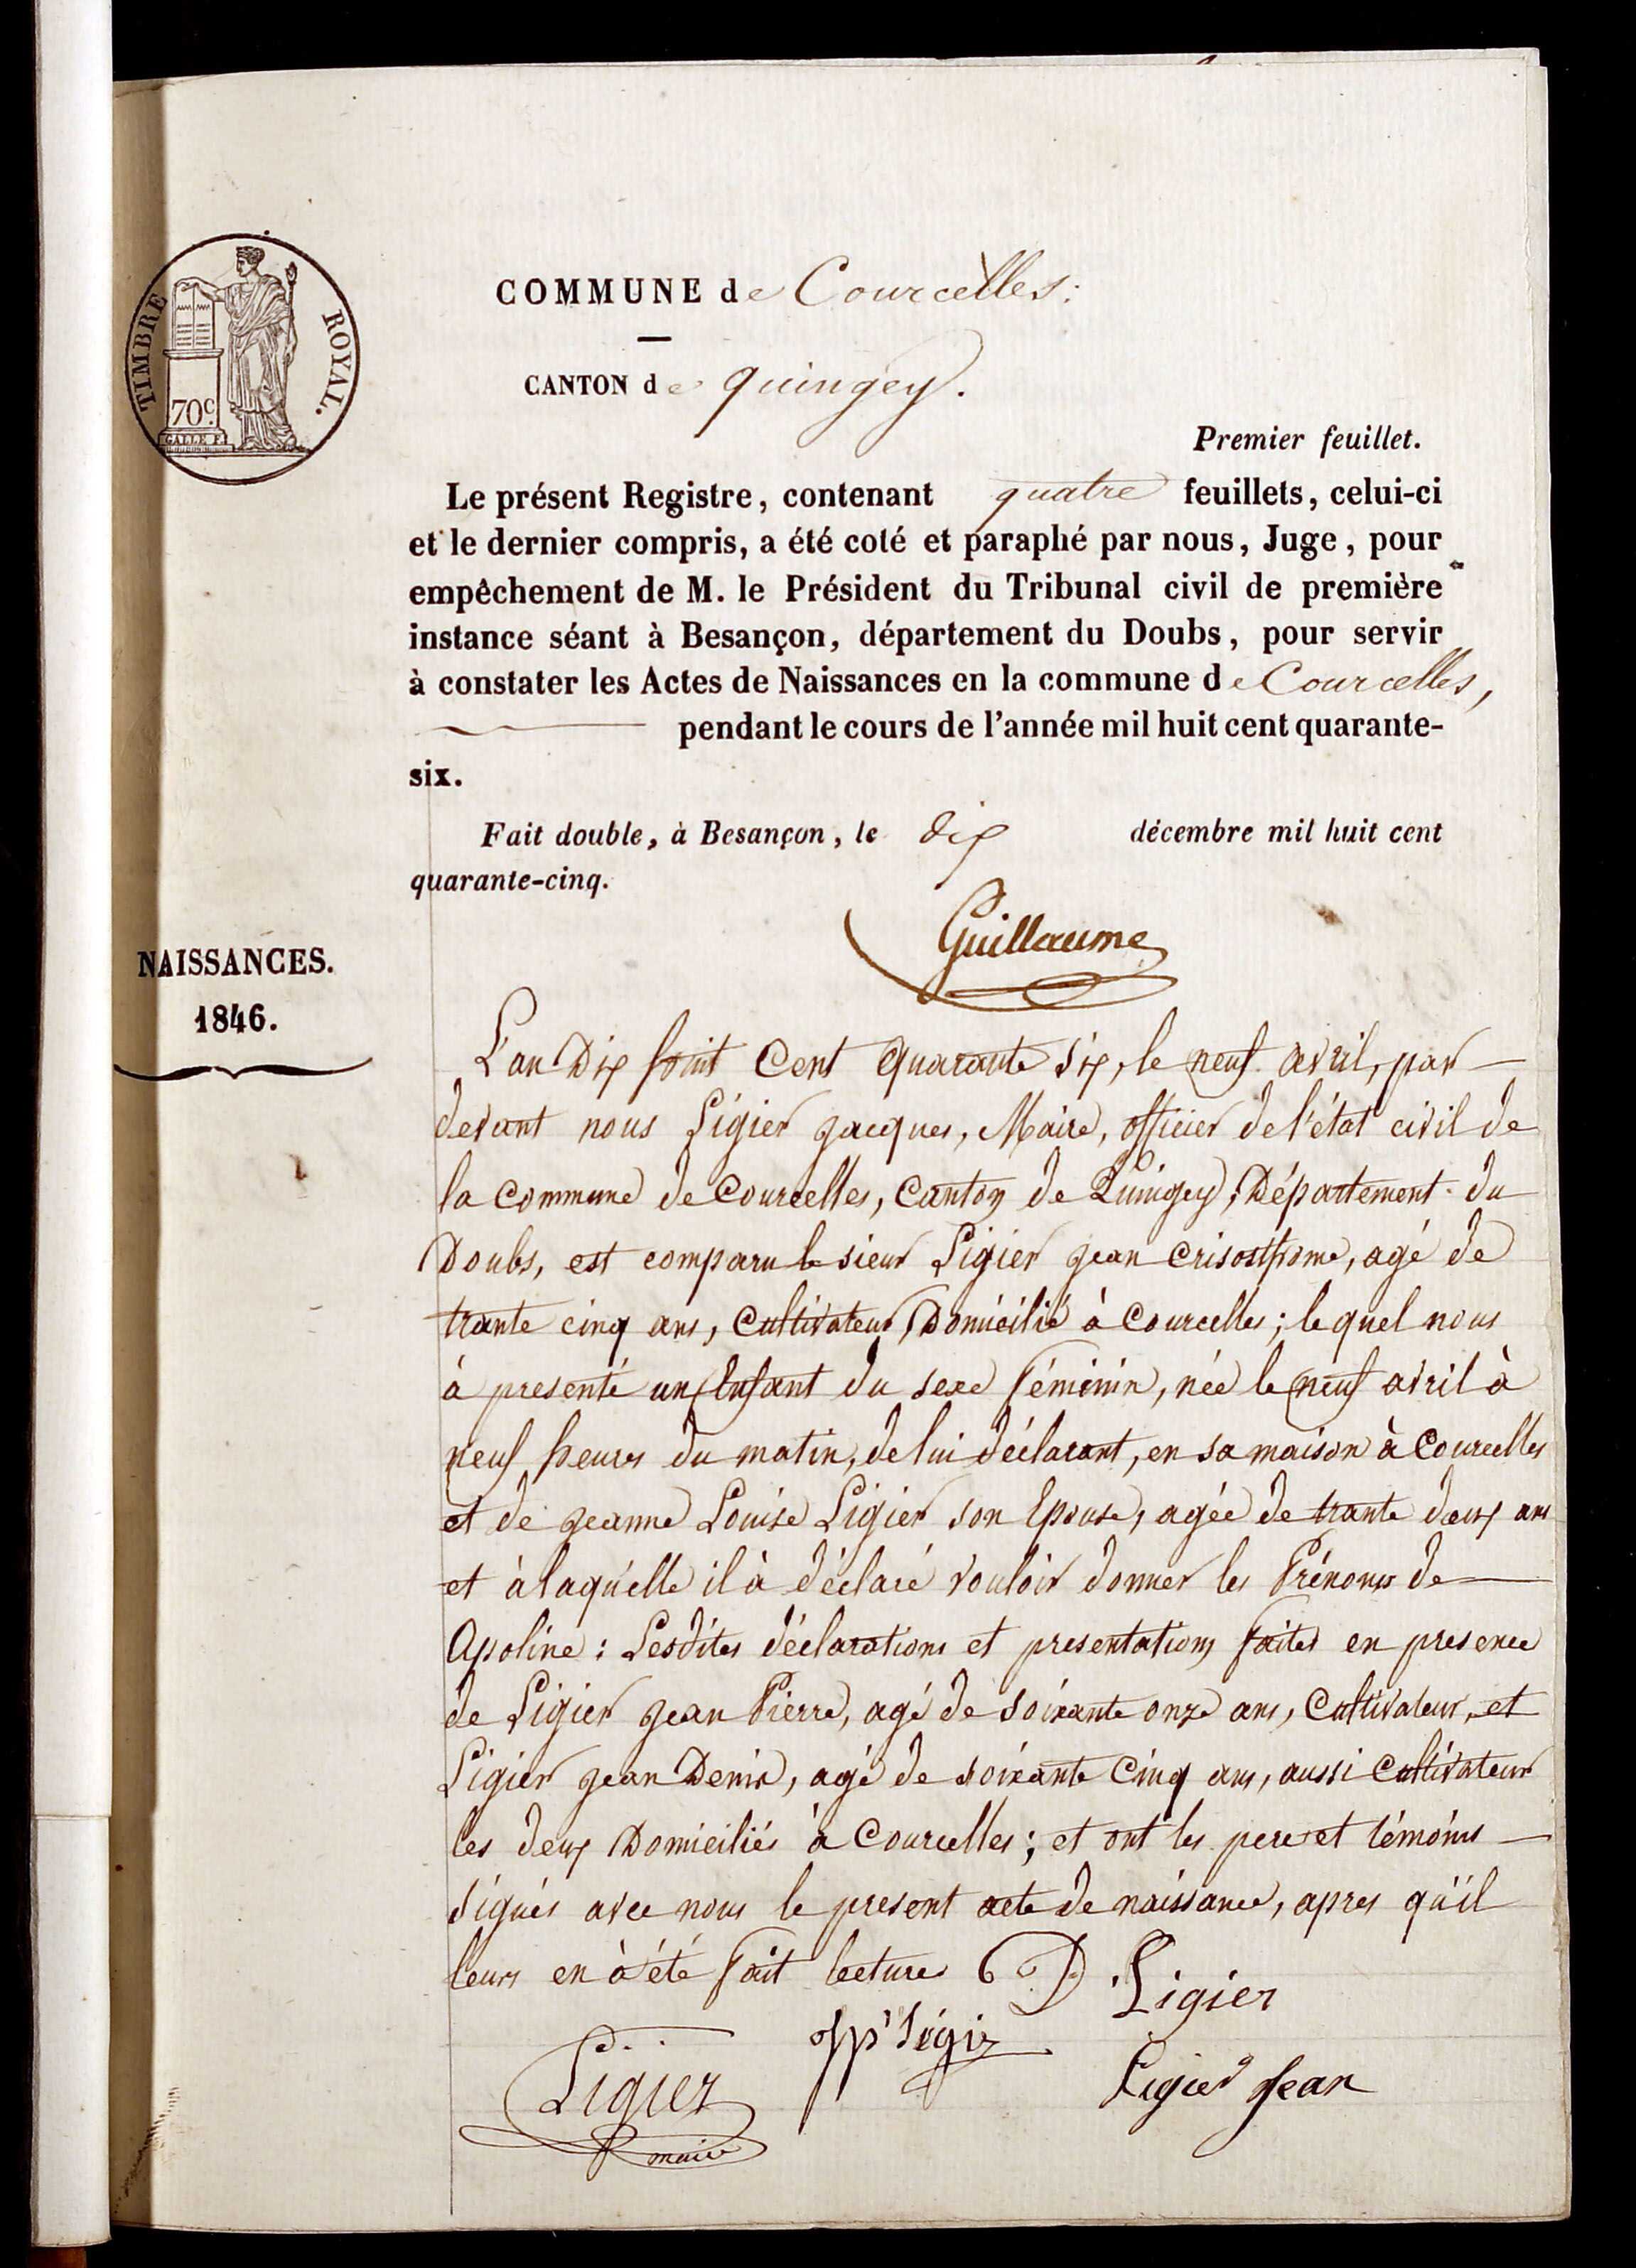 TIMBRE ROYAL.
70c.
GALLE F.
COMMUNE de Courcelles.
CANTON de quingey.
Premier feuillet.
Le présent Registre, contenant quatre feuillets, celui-ci
et le dernier compris, a été coté et paraphé par nous, Juge, pour
empêchement de M. le Président du Tribunal civil de première
instance séant à Besançon, département du Doubs, pour servir
à constater les Actes de Naissances en la commune de Courcelles,
pendant le cours de l'année mil huit cent quarante-
six.
Fait double, à Besançon, le dix décembre mil huit cent
quarante-cinq.
Guillaume
NAISSANCES.
1846.
L'an Dix huit Cent quarante six, le neuf avril, par
devant nous Ligier jacques, Maire, officier de l'état civil de
la commune de Courcelles, Canton de Quingey, Département du
Doubs, est comparu le sieur Ligier jean Crisosthome, agé de
trante cinq ans, Cultivateur Domicilié à Courcelles; le quel nous
à presenté un Enfant du sexe féminin, née le neuf avril à
neuf heures du matin, de lui déclarant, en sa maison à Courcelles
et de jeanne Louise Ligier son Epouse, agée de trante deux ans
et à laquelle il à déclaré vouloir donner les Prénoms de
Apoline: Lesdites déclarations et presentations faites en presence
de Ligier jean Pierre, agé de soixante onze ans, Cultivateur, et
Ligier jean Denis, agé de soixante Cinq ans, aussi Cultivateur
les deux Domiciliés à Courcelles; et ont les pere et témoins
signés avec nous le present acte de naissance, apres qu'il
leurs en à été fait lecture D Ligier
Ligier
Ligier jean
maire